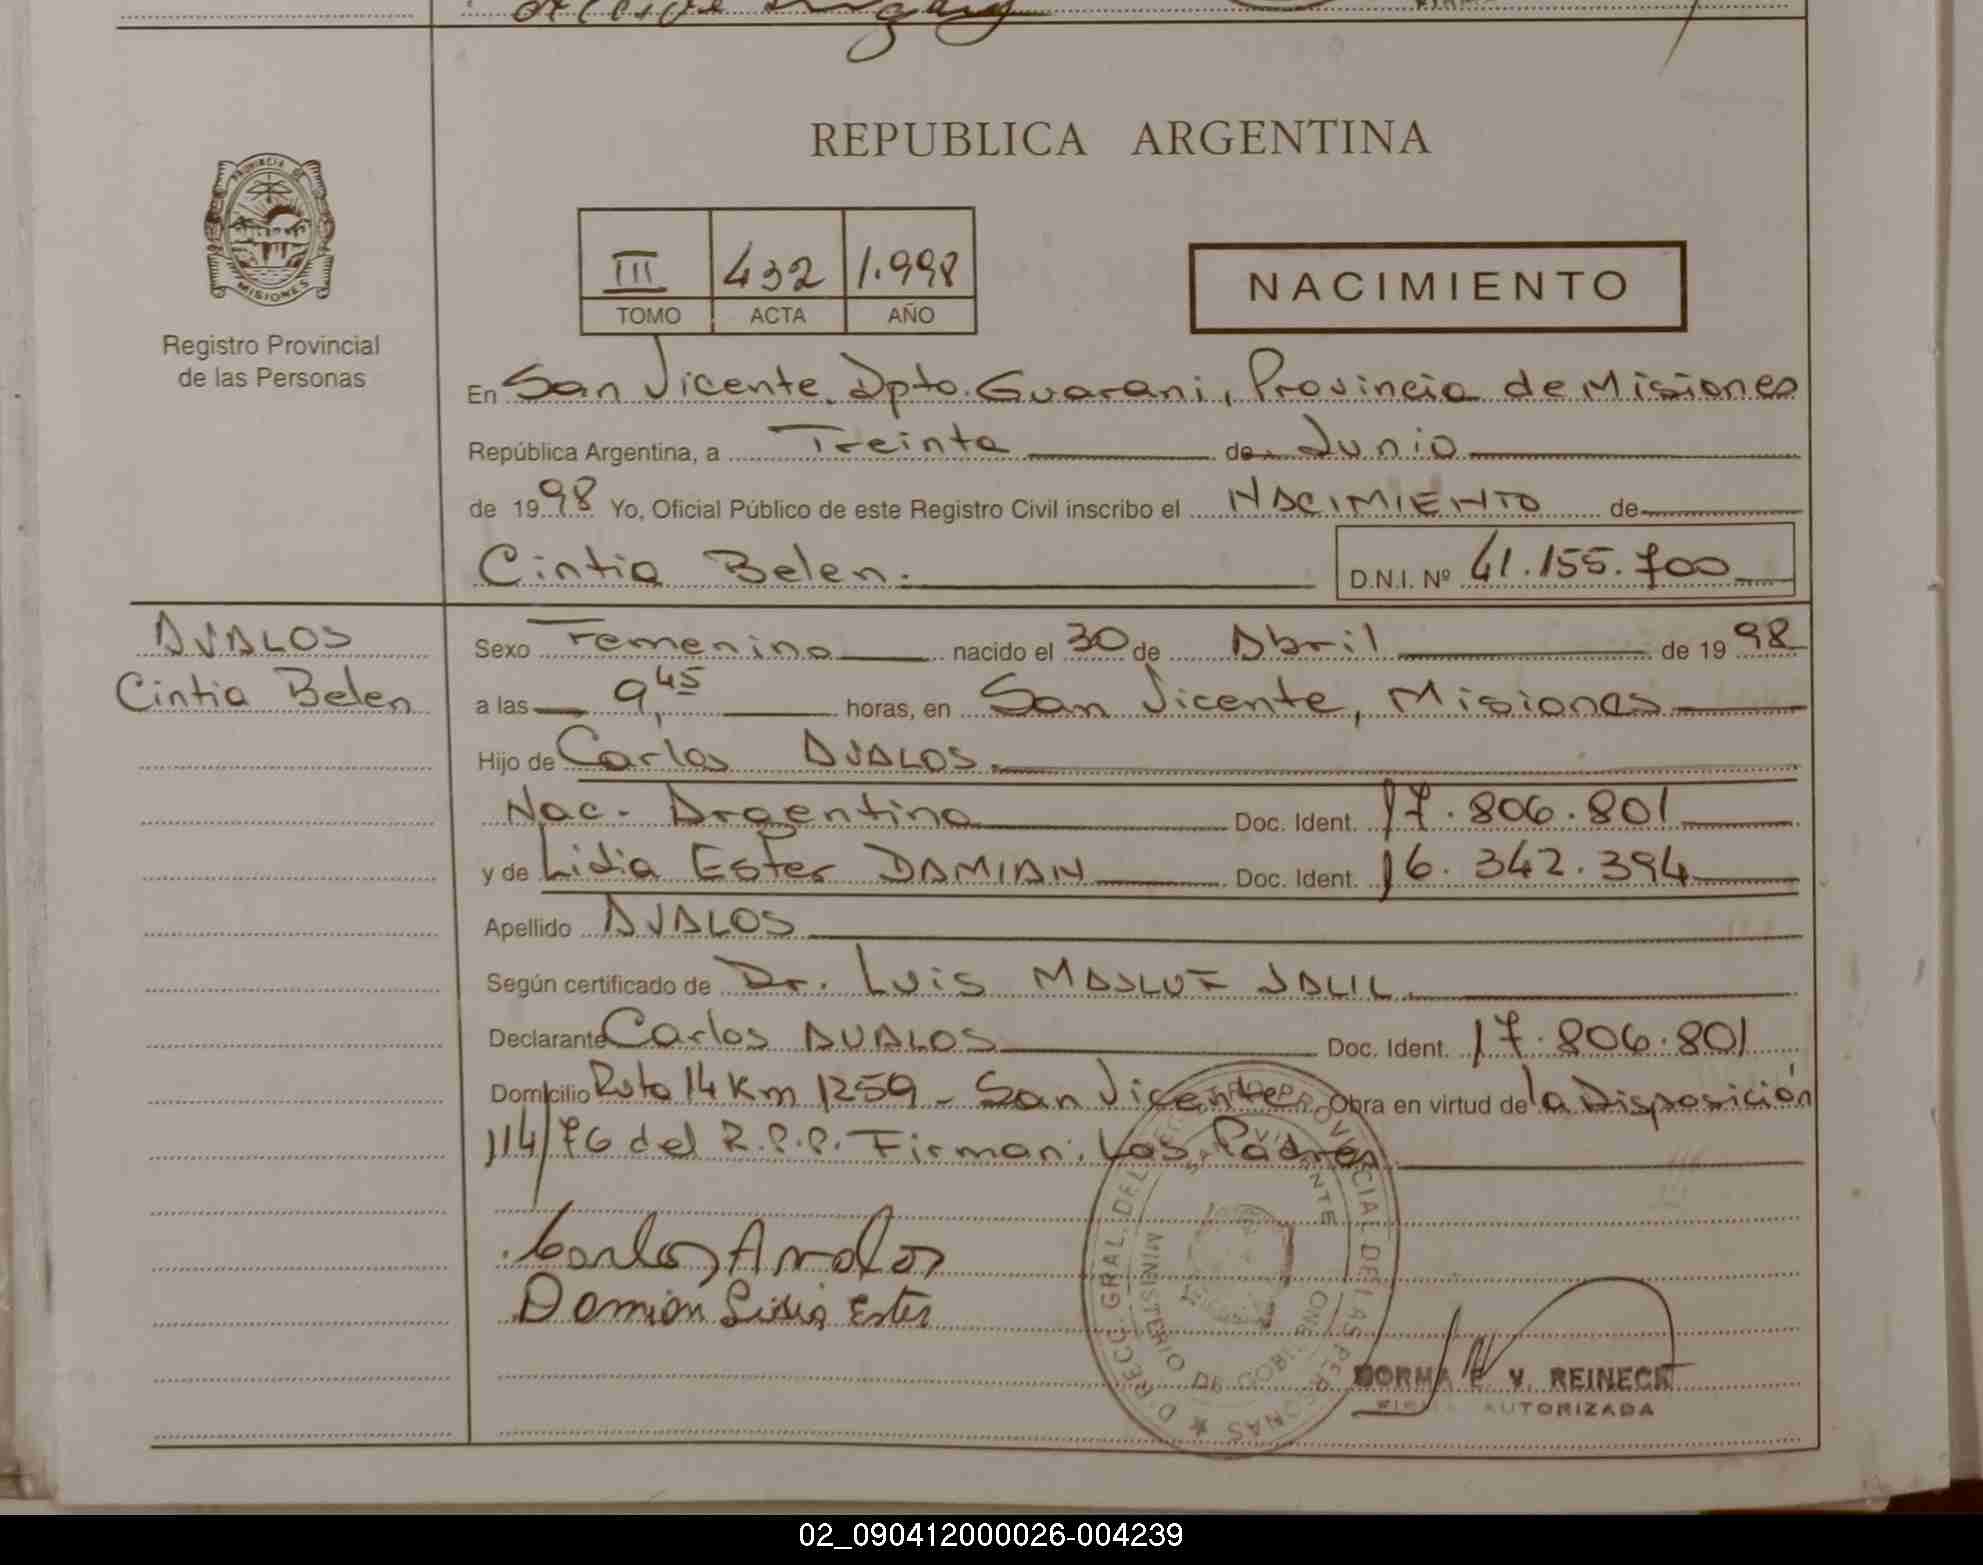 REPUBLICA ARGENTINA
PROVINCIA DE
MISIONES
Registro Provincial
de las Personas
III 432 1.998
TOMO ACTA AÑO
NACIMIENTO
En San Vicente, Dpto. Guarani, Provincia de Misiones
República Argentina, a Treinta de Junio
de 1998 Yo, Oficial Público de este Registro Civil inscribo el NACIMIENTO de
Cintia Belen.
D.N.I. Nº 41.155.700
AVALOS
Cintia Belen
Sexo Femenino nacido el 30 de Abril de 1998
a las 9,45 horas, en San Vicente, Misiones
Hijo de Carlos AVALOS.
Nac. Argentina Doc. Ident. 17.806.801
y de Lidia Ester DAMIAN Doc. Ident. 16.342.394
Apellido AVALOS
Según certificado de Dr. Luis MASLUF JALIL
Declarante Carlos AVALOS Doc. Ident. 17.806.801
Domicilio Ruta 14 Km 1259 - San Vicente Obra en virtud de la Disposición
114/76 del R.P.P. Firman: Los Padres
Carlos Avalos
Damian Lidia Ester
DIRECC. GRAL. DEL REGISTRO PROVINCIAL DE LAS PERSONAS
MINISTERIO DE GOBIERNO
NORMA E. V. REINECK
AUTORIZADA
02_090412000026-004239